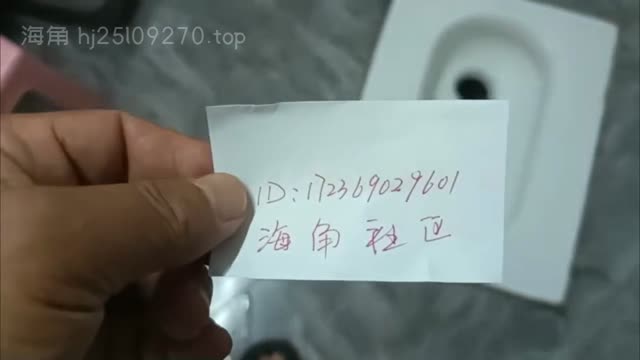 海角 hj25l09270.top
ID:172369029601
海角社区